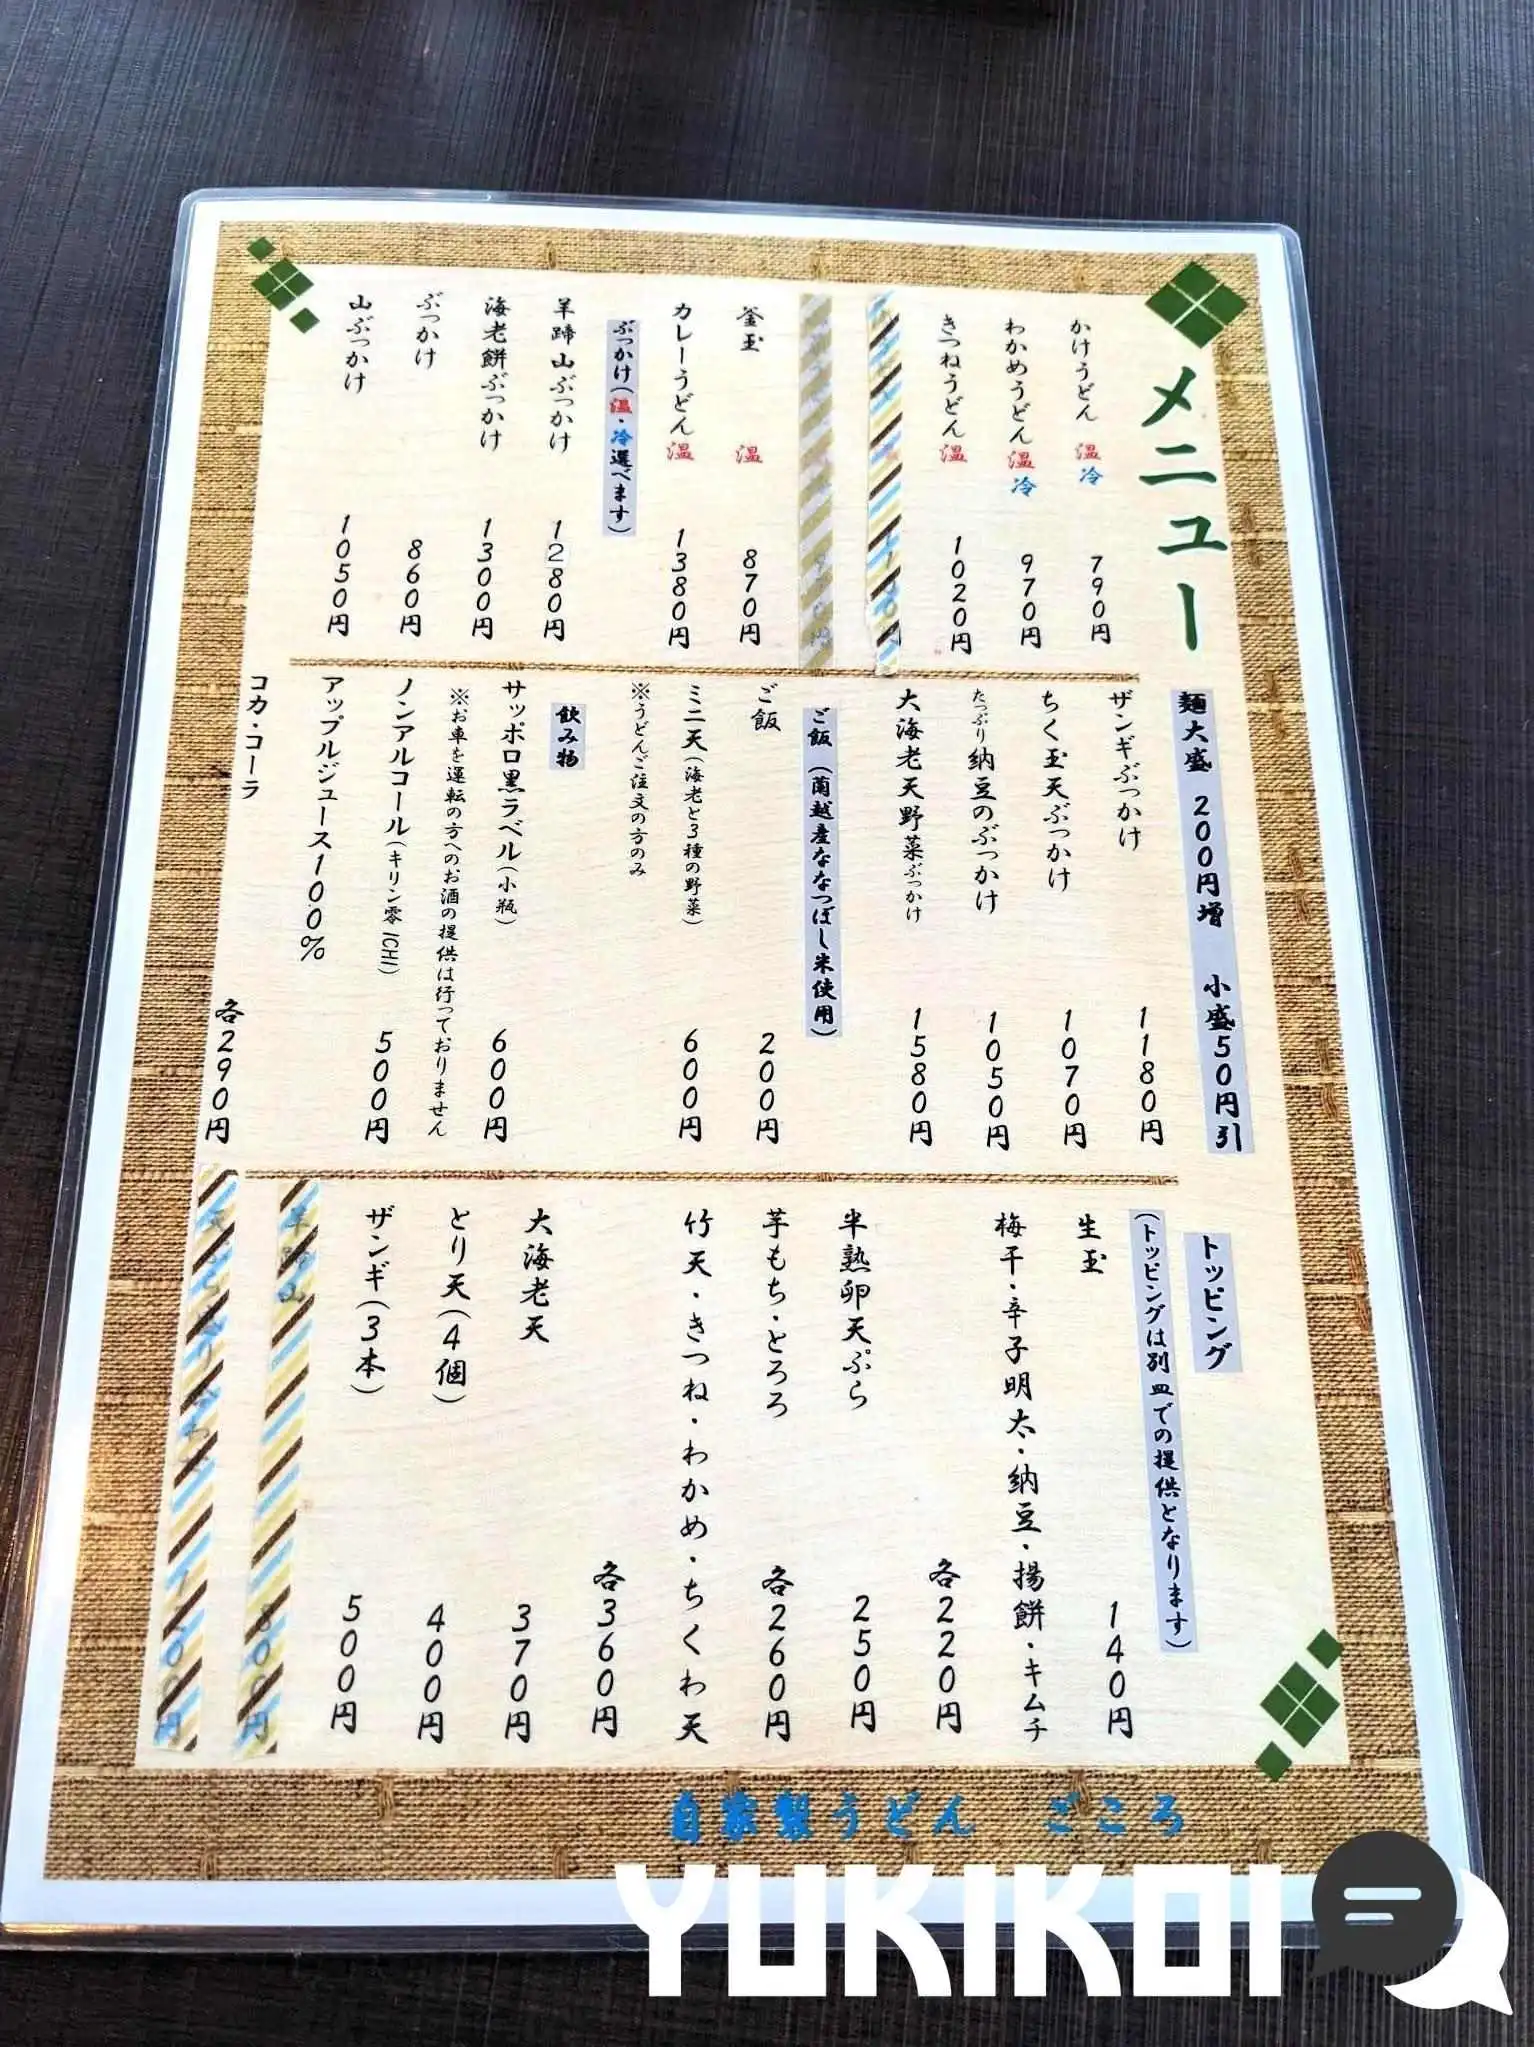 メニュー
かけうどん 温 冷 790円
わかめうどん 温 冷 970円
きつねうどん 温 1020円
釜玉 温 870円
カレーうどん 温 1380円
ぶっかけ(温・冷選べます)
羊蹄山ぶっかけ 1280円
海老餅ぶっかけ 1300円
ぶっかけ 860円
山ぶっかけ 1050円
麺大盛 200円増 小盛50円引
ザンギぶっかけ 1180円
ちく玉天ぶっかけ 1070円
たっぷり納豆のぶっかけ 1050円
大海老天野菜ぶっかけ 1580円
ご飯(蘭越産ななつぼし米使用)
ご飯 200円
ミニ天(海老と3種の野菜) 600円
※うどんご注文の方のみ
飲み物
サッポロ黒ラベル(小瓶) 600円
※お車を運転の方へのお酒の提供は行っておりません
ノンアルコール(キリン零ICHI) 500円
アップルジュース100%
コカ・コーラ 各290円
トッピング
(トッピングは別皿での提供となります)
生玉 140円
梅干・辛子明太・納豆・揚餅・キムチ
各220円
半熟卵天ぷら 250円
芋もち・とろろ 各260円
竹天・きつね・わかめ・ちくわ天
各360円
大海老天 370円
とり天(4個) 400円
ザンギ(3本) 500円
羊蹄山 800円
自家製うどん ごころ
YUKIKOI